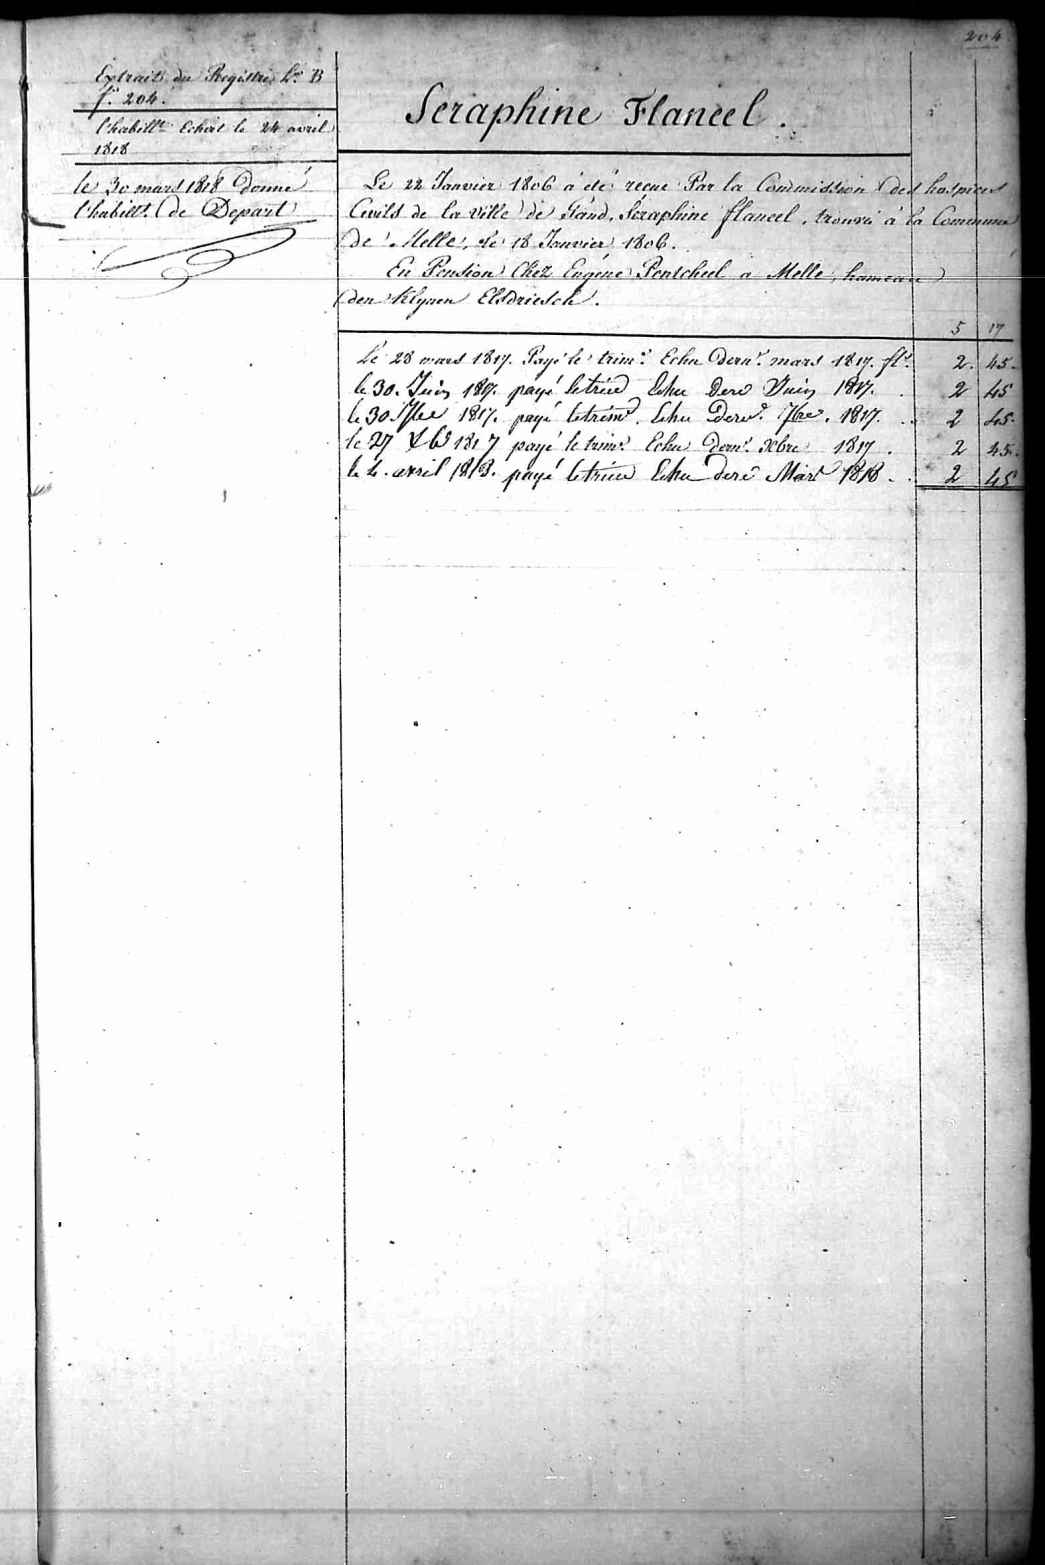 204
Extrait du Registre Lre B
f° 204.
l'habillt Echoit le 24 avril
1818
le 30 mars 1818 donné
l'habillt de Depart
Seraphine Flaneel.
Le 22 Janvier 1806 à eté recue Par la Commission des hospices
Civils de la Ville de Gand, Seraphine flaneel, trouvée à la Commune
de Melle, le 18 Janvier 1806.
En Pension Chez Eugéne à Melle, hameau
den Klynen Elsdriesch.
5 17
Le 28 mars 1817. Payé le trimre Echu Dernr mars 1817. fls 2. 45.
le 30. Juin 1817. payé le trim Echu Dern Juin 1817. 2 45
le 30. 7bre 1817. payé le trimre Echu Dernr 7bre. 1817. 2 45.
le 27 Xb 1817 payé le trimre Echu dernr Xbre 1817. 2 45.
le 4. avril 1818. payé le trim Echu dern Mars 1818. 2 45